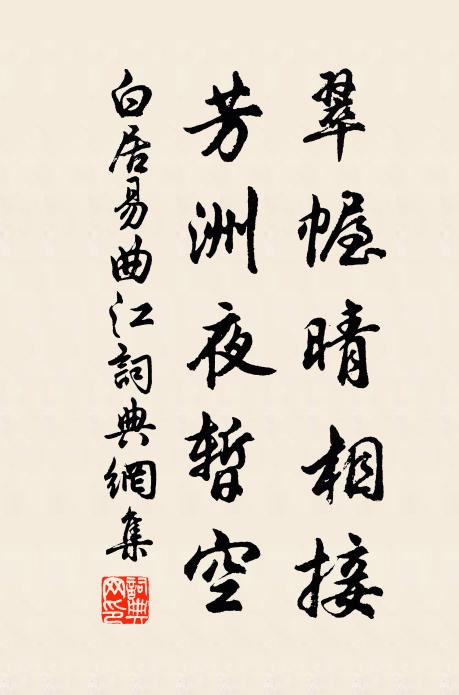 翠幄晴相接
芳洲夜暫空
白居易曲江詞典網集
詞典網印